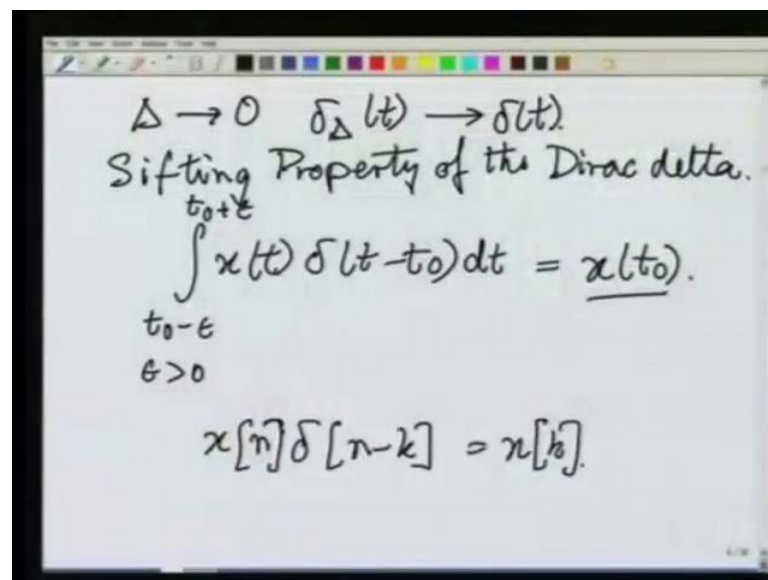 Δ → 0 δ_Δ(t) → δ(t).
Sifting Property of the Dirac delta.
t₀+ε
∫ x(t) δ(t-t₀)dt = x(t₀).
t₀-ε
ε>0
x[n]δ[n-k] = x[k].